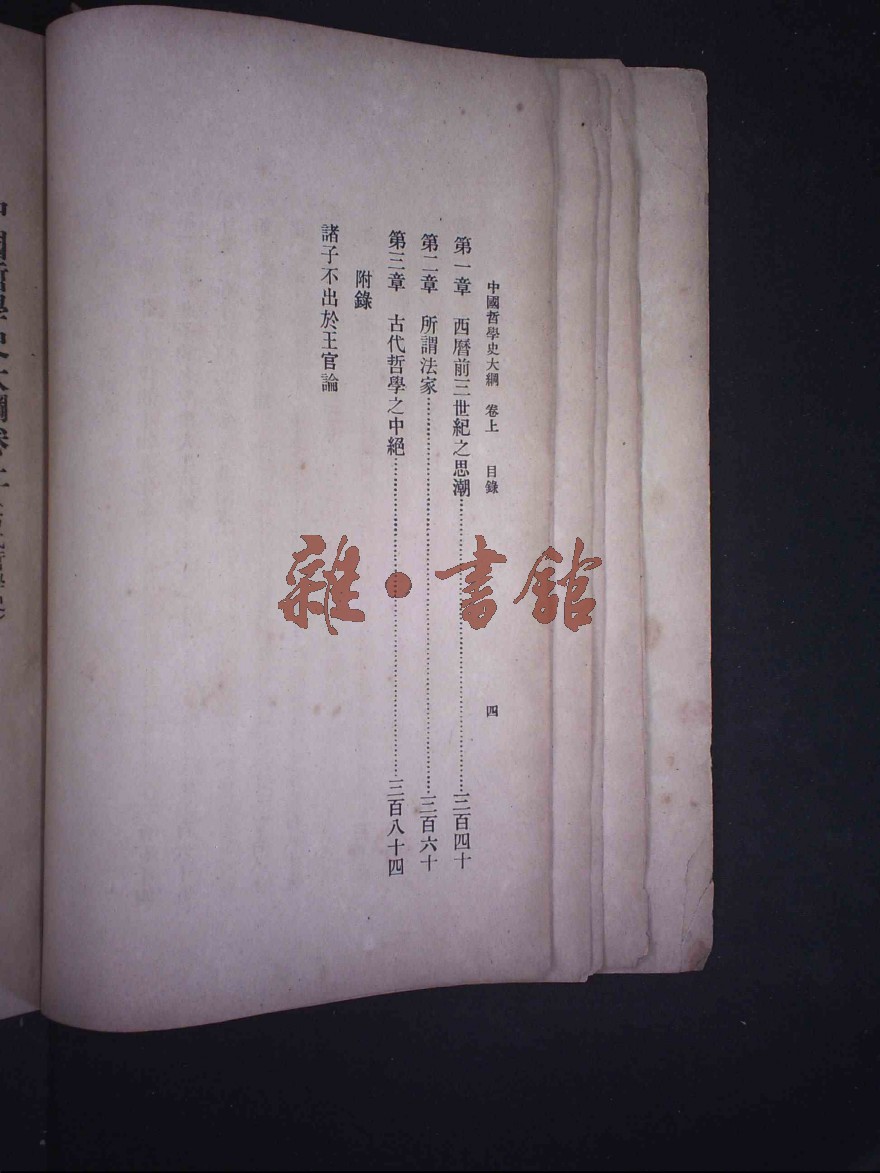 中國哲學史大綱 卷上 目錄 四
第一章 西曆前三世紀之思潮……三百四十
第二章 所謂法家……三百六十
第三章 古代哲學之中絕……三百八十四
附錄
諸子不出於王官論
雜·書館
中國哲學史大綱卷上